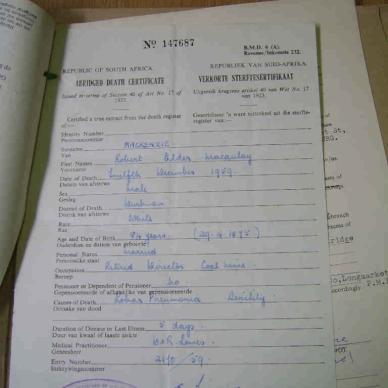 Nº 147687
B.M.D. 6 (A).
Revenue/Inkomste 232.
REPUBLIC OF SOUTH AFRICA. REPUBLIEK VAN SUID-AFRIKA.
ABRIDGED DEATH CERTIFICATE VERKORTE STERFTESERTIFIKAAT
Issued in terms of Section 40 of Act No. 17 of 1923. Uitgereik kragtens artikel 40 van Wet No. 17 van 1923.
Certified a true extract from the death register of
Identity Number
Persoonsnommer
Surname MACKENZIE
Van
First Names Robert Elder Macaulay
Voorname
Date of Death Twelfth December 1959.
Datum van afsterwe
Sex Male
Geslag
District of Death Durban
Distrik van afsterwe
Race White
Ras
Age and Date of Birth 84 years
Ouderdom en datum van geboorte
Personal Status Married
Persoonlike staat
Occupation Retired Director Coal Mines.
Beroep
Pensioner or Dependent of Pensioner No
Gepensioeneerde of afhanklike van gepensioeneerde
Causes of Death Lobar Pneumonia Senility
Oorsake van dood
Duration of Disease in Last Illness 5 days.
Duur van kwaal of laaste siekte
Medical Practitioner
Geneesheer
Entry Number
Inskrywingsnommer